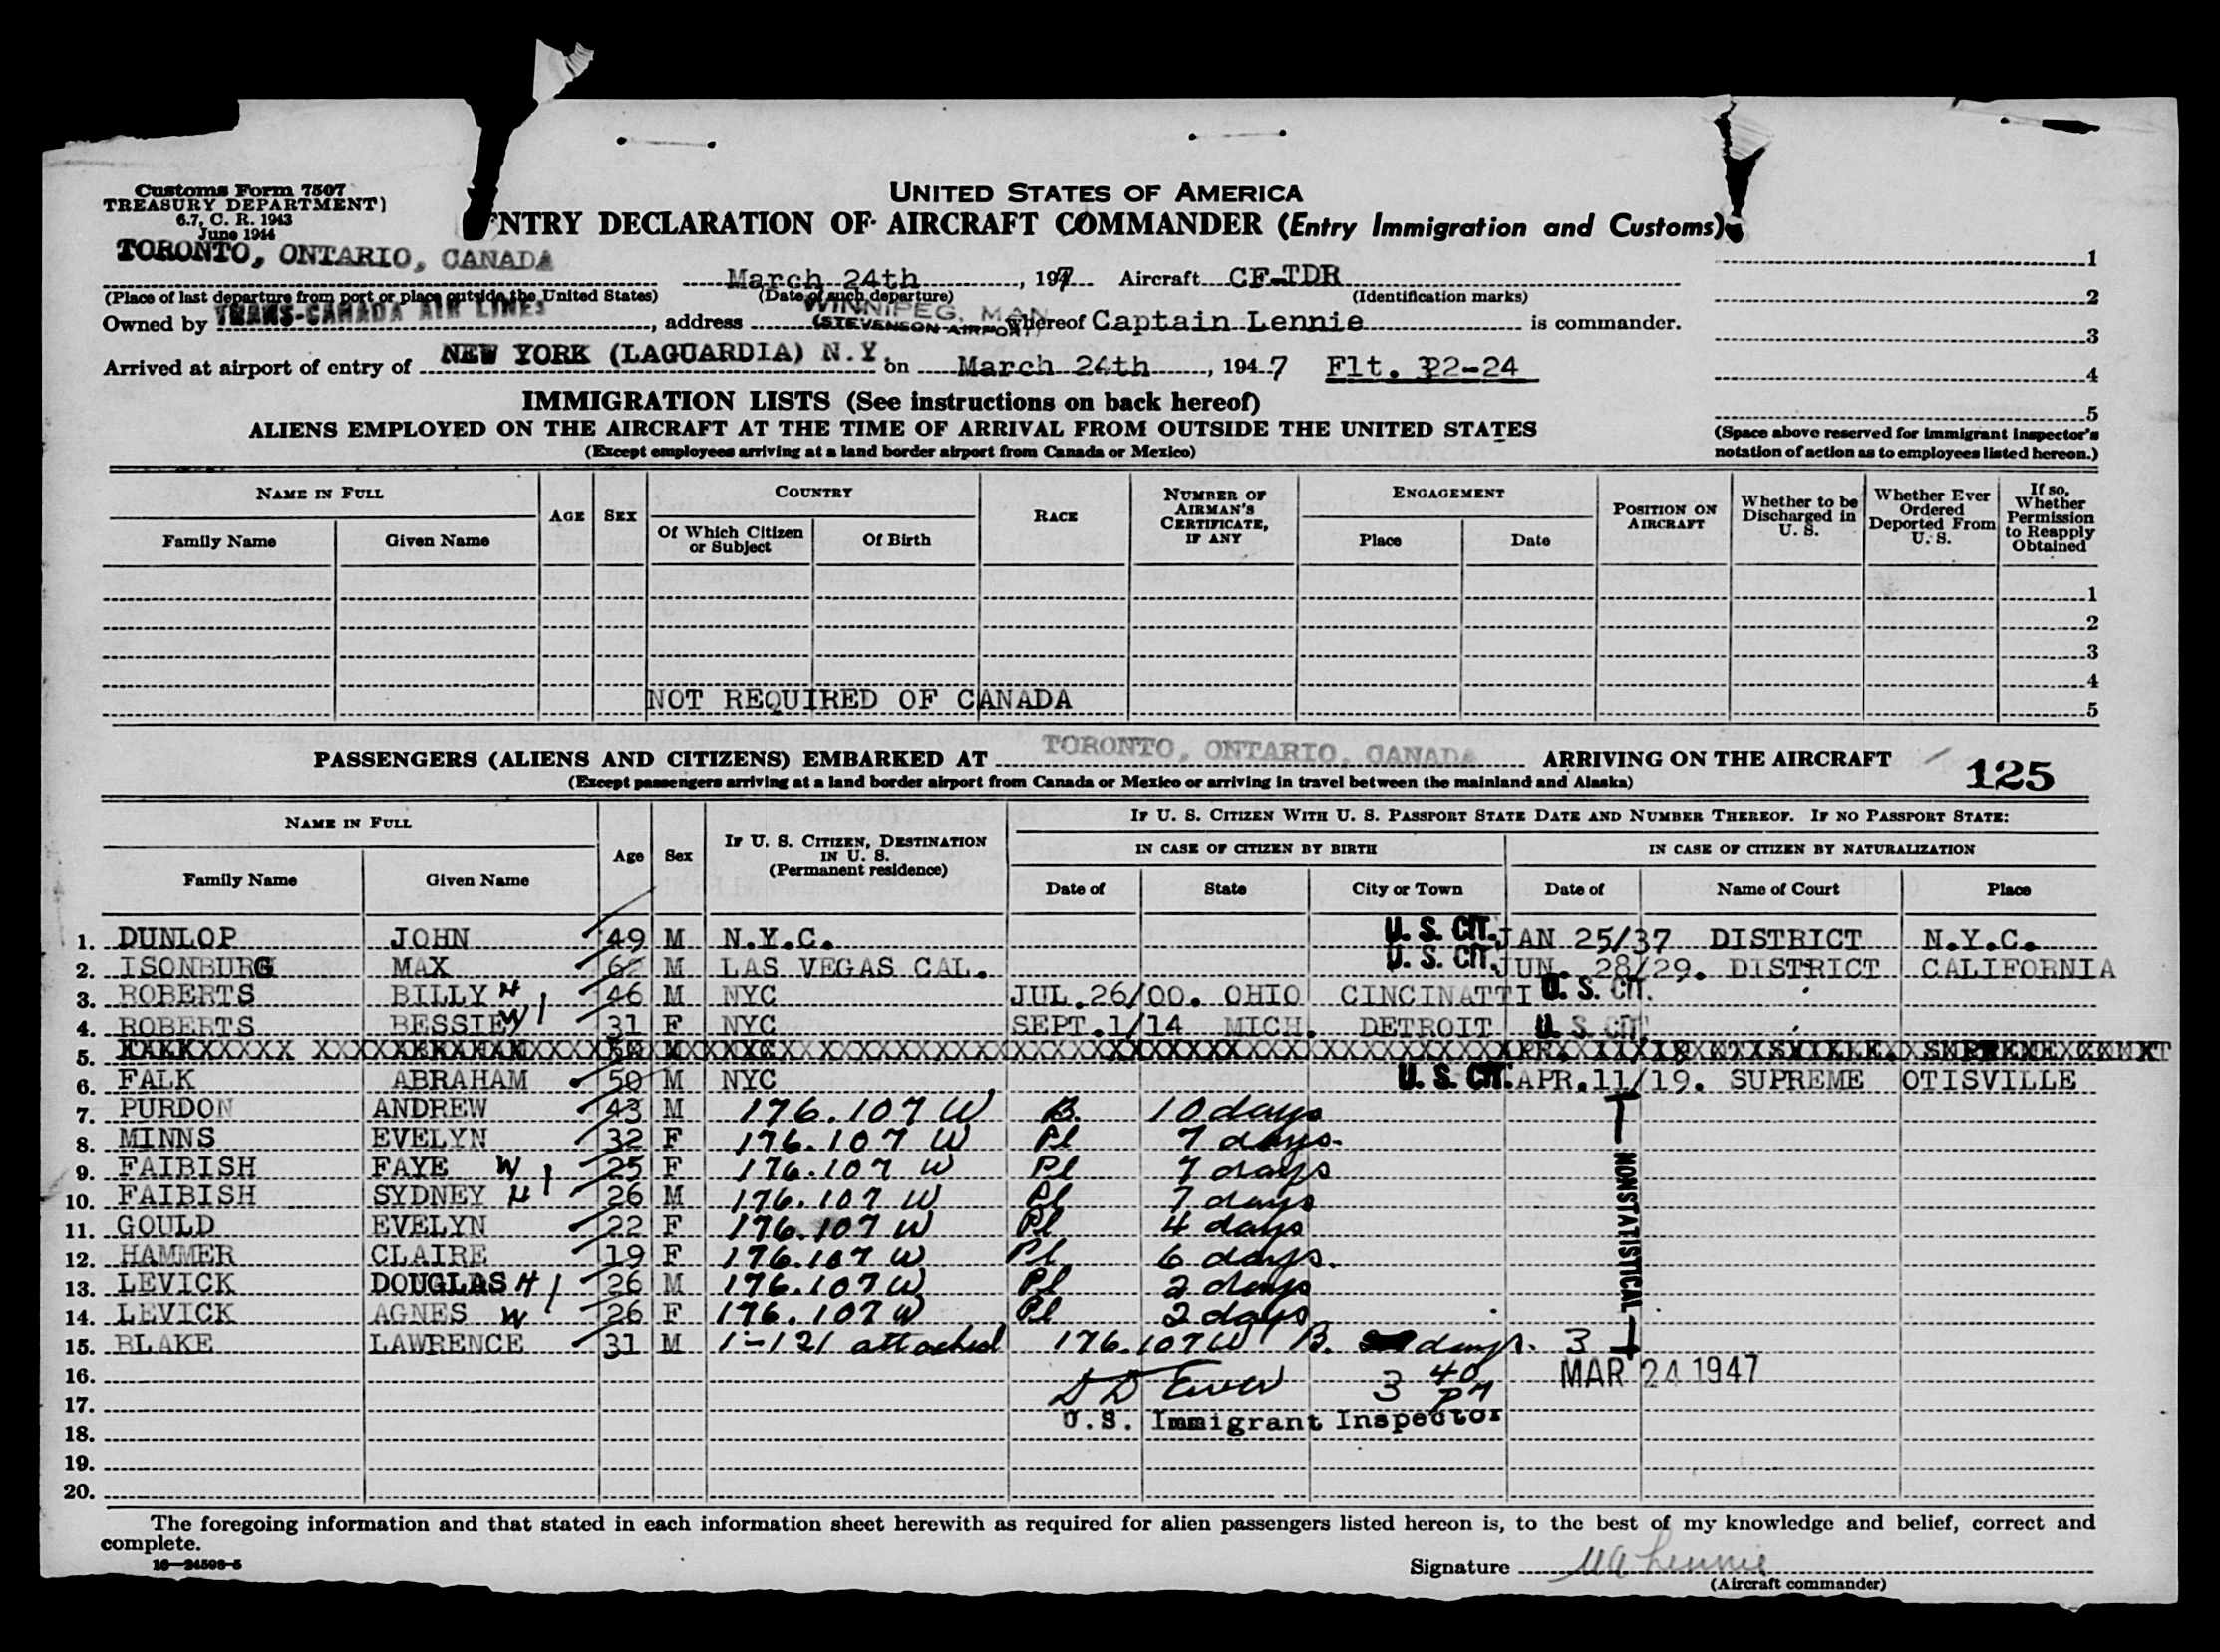 Customs Form 7507
TREASURY DEPARTMENT)
6.7, C. R. 1943
June 1944
UNITED STATES OF AMERICA
ENTRY DECLARATION OF AIRCRAFT COMMANDER (Entry Immigration and Customs)
TORONTO, ONTARIO, CANADA March 24th, 1947 Aircraft CF-TDR
(Place of last departure from port or place outside the United States) (Date of such departure) (Identification marks)
WINNIPEG, MAN
Owned by TRANS-CANADA AIR LINES, address (STEVENSON AIRPORT) whereof Captain Lennie is commander.
Arrived at airport of entry of NEW YORK (LAGUARDIA) N.Y. on March 24th, 1947 Flt. 322-24
1
2
3
4
5
(Space above reserved for immigrant inspector's
notation of action as to employees listed hereon.)
IMMIGRATION LISTS (See instructions on back hereof)
ALIENS EMPLOYED ON THE AIRCRAFT AT THE TIME OF ARRIVAL FROM OUTSIDE THE UNITED STATES
(Except employees arriving at a land border airport from Canada or Mexico)
NAME IN FULL AGE SEX COUNTRY RACE NUMBER OF AIRMAN'S CERTIFICATE, IF ANY ENGAGEMENT POSITION ON AIRCRAFT Whether to be Discharged in U. S. Whether Ever Ordered Deported From U. S. If so, Whether Permission to Reapply Obtained
Family Name Given Name Of Which Citizen or Subject Of Birth Place Date
1
2
3
4
NOT REQUIRED OF CANADA 5
PASSENGERS (ALIENS AND CITIZENS) EMBARKED AT TORONTO, ONTARIO, CANADA ARRIVING ON THE AIRCRAFT 125
(Except passengers arriving at a land border airport from Canada or Mexico or arriving in travel between the mainland and Alaska)
NAME IN FULL Age Sex IF U. S. CITIZEN, DESTINATION IN U. S. (Permanent residence) IF U. S. CITIZEN WITH U. S. PASSPORT STATE DATE AND NUMBER THEREOF. IF NO PASSPORT STATE:
IN CASE OF CITIZEN BY BIRTH IN CASE OF CITIZEN BY NATURALIZATION
Family Name Given Name Date of State City or Town Date of Name of Court Place
1. DUNLOP JOHN 49 M N.Y.C. U. S. CIT. JAN 25/37 DISTRICT N.Y.C.
2. ISONBURG MAX 62 M LAS VEGAS CAL. U. S. CIT. JUN. 28/29. DISTRICT CALIFORNIA
3. ROBERTS BILLY H 46 M NYC JUL.26/00. OHIO CINCINATTI U. S. CIT.
4. ROBERTS BESSIE W 31 F NYC SEPT.1/14 MICH. DETROIT U. S. CIT
5.
6. FALK ABRAHAM 50 M NYC U. S. CIT. APR.11/19. SUPREME OTISVILLE
7. PURDON ANDREW 43 M 176.107 W B. 10 days
8. MINNS EVELYN 32 F 176.107 W Pl 7 days.
9. FAIBISH FAYE W 25 F 176.107 W Pl 7 days
10. FAIBISH SYDNEY H 26 M 176.107 W Pl 7 days
11. GOULD EVELYN 22 F 176.107 W Pl 4 days
12. HAMMER CLAIRE 19 F 176.107 W Pl 6 days.
13. LEVICK DOUGLAS H 26 M 176.107 W Pl 2 days
14. LEVICK AGNES W 26 F 176.107 W Pl 2 days
NONSTATISTICAL
15. BLAKE LAWRENCE 31 M 1-121 attached 176.107 W B. days. 3
16. 3 40 PM MAR 24 1947
17.
U.S. Immigrant Inspector
18.
19.
20.
The foregoing information and that stated in each information sheet herewith as required for alien passengers listed hereon is, to the best of my knowledge and belief, correct and
complete.
16—24598-5
Signature Lennie
(Aircraft commander)